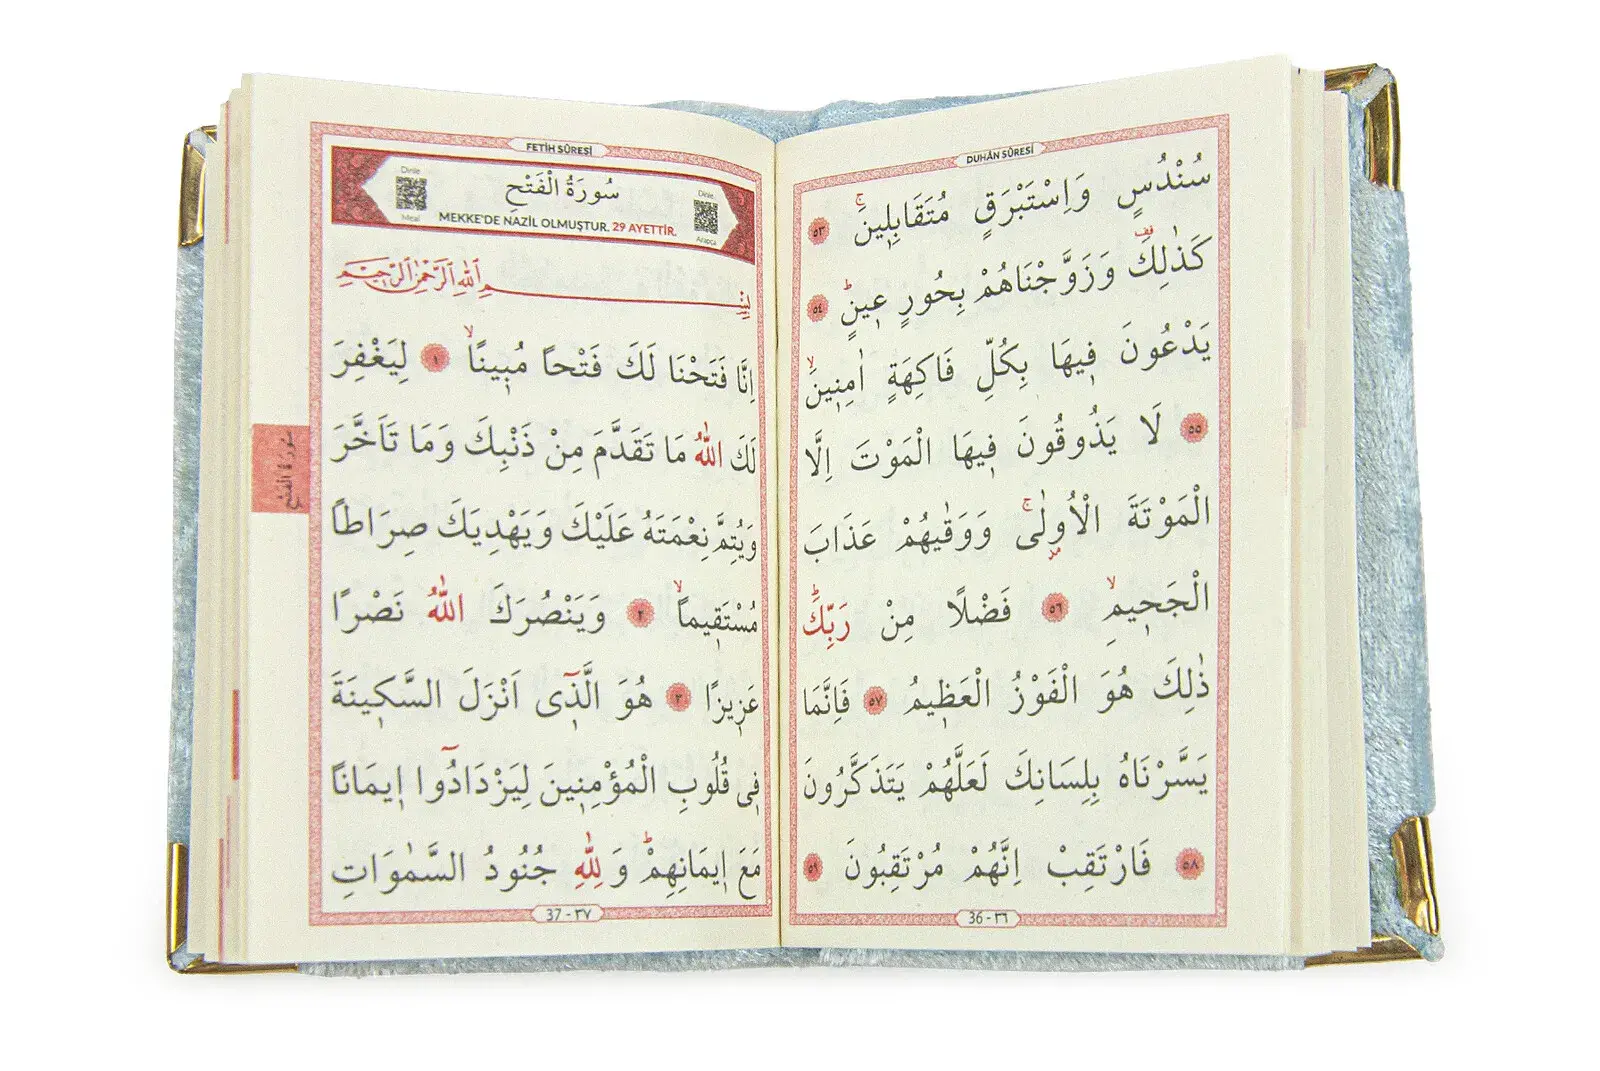 DUHÂN SÛRESİ
سُنْدُسٍ وَاِسْتَبْرَقٍ مُتَقَابِلِينَۚ ٥٣
كَذٰلِكَ۠ وَزَوَّجْنَاهُمْ بِحُورٍ عٖينٍۜ ٥٤
يَدْعُونَ فٖيهَا بِكُلِّ فَاكِهَةٍ اٰمِنٖينَۙ
٥٥ لَا يَذُوقُونَ فٖيهَا الْمَوْتَ اِلَّا
الْمَوْتَةَ الْاُولٰىۚ وَوَقٰيهُمْ عَذَابَ
الْجَحٖيمِۙ ٥٦ فَضْلًا مِنْ رَبِّكَۜ
ذٰلِكَ هُوَ الْفَوْزُ الْعَظٖيمُ ٥٧ فَاِنَّمَا
يَسَّرْنَاهُ بِلِسَانِكَ لَعَلَّهُمْ يَتَذَكَّرُونَ
٥٨ فَارْتَقِبْ اِنَّهُمْ مُرْتَقِبُونَ ٥٩
36 - ٣٦
FETİH SÛRESİ
Dinle
Meal
سُورَةُ الْفَتْحِ
MEKKE'DE NAZİL OLMUŞTUR. 29 AYETTİR.
Dinle
Arapça
بِسْمِ اللّٰهِ الرَّحْمٰنِ الرَّحٖيمِ
اِنَّا فَتَحْنَا لَكَ فَتْحًا مُبٖينًاۙ ١ لِيَغْفِرَ
لَكَ اللّٰهُ مَا تَقَدَّمَ مِنْ ذَنْبِكَ وَمَا تَاَخَّرَ
وَيُتِمَّ نِعْمَتَهُ عَلَيْكَ وَيَهْدِيَكَ صِرَاطًا
مُسْتَقٖيمًاۙ ٢ وَيَنْصُرَكَ اللّٰهُ نَصْرًا
عَزٖيزًا ٣ هُوَ الَّذٖٓى اَنْزَلَ السَّكٖينَةَ
فٖى قُلُوبِ الْمُؤْمِنٖينَ لِيَزْدَادُٓوا اٖيمَانًا
مَعَ اٖيمَانِهِمْۜ وَلِلّٰهِ جُنُودُ السَّمٰوَاتِ
37 - ٣٧
سُورَةُ الْفَتْحِ